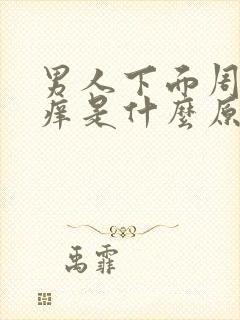 男人下面周
痒是什麼原
禹霏